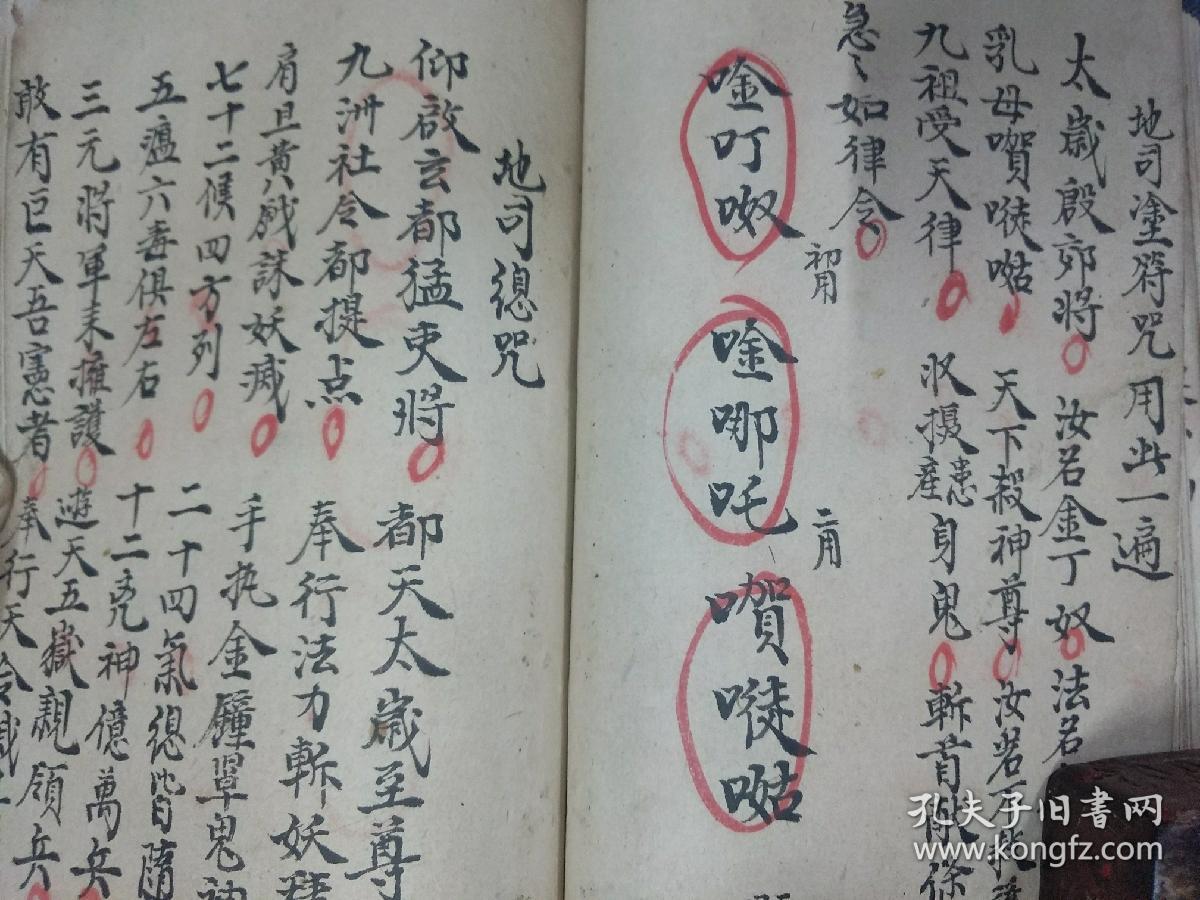 地司塗符咒 用此一遍
太歲殷郊將 汝名金丁奴 法名
乳母喞㗶㖼 天下殺神尊 汝若不
九祖受天律 收攝患身鬼 斬首
産
急〻如律令
唫叮呶
初用
唫哪吒
二用
地司總咒
仰啟玄都猛吏將 都天太歲至尊
九洲社令都提点 奉行法力斬妖
肩担黃鉞誅妖滅 手执金鐘罩鬼
七十二候四方列 二十四氣總皆隨
五瘟六毒俱左右 十二兇神億萬兵
三元將軍来擁護 遊天五嶽親領兵
敢有巨天吾憲者 奉行天令
孔夫子旧书网
www.kongfz.com